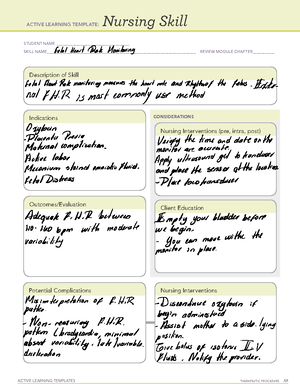 ACTIVE LEARNING TEMPLATE: Nursing Skill
STUDENT NAME
SKILL NAME Fetal Heart Rate Monitoring REVIEW MODULE CHAPTER
Description of Skill
Fetal Heart Rate monitoring measures the heart rate and rhythm of the fetus. Exter-
nal F.H.R is most commonly use method
Indications
Oxytocin
- Placenta Previa
Maternal complication.
Active labor
Meconium stained amniotic fluid.
Fetal Distress
CONSIDERATIONS
Nursing Interventions (pre, intra, post)
Verify the time and date on the
monitor are accurate.
Apply ultrasound gel to transducer
and place the sensor at the
- Place toco transducer
Outcomes/Evaluation
Adequate F.H.R between
110-160 bpm with moderate
variability
Client Education
Empty your bladder before
we begin.
- You can move with the
monitor in place.
Potential Complications
Misinterpretation of F.H.R
- Non-reassuring F.H.R.
pattern (bradycardia, minimal
absent variability, late/variable
Nursing Interventions
- Discontinue oxytocin if
begin administered
- Assist mother to a side-lying
position.
Give bolus of isotonic IV
Fluids. Notify the provider.
ACTIVE LEARNING TEMPLATES
THERAPEUTIC PROCEDURE